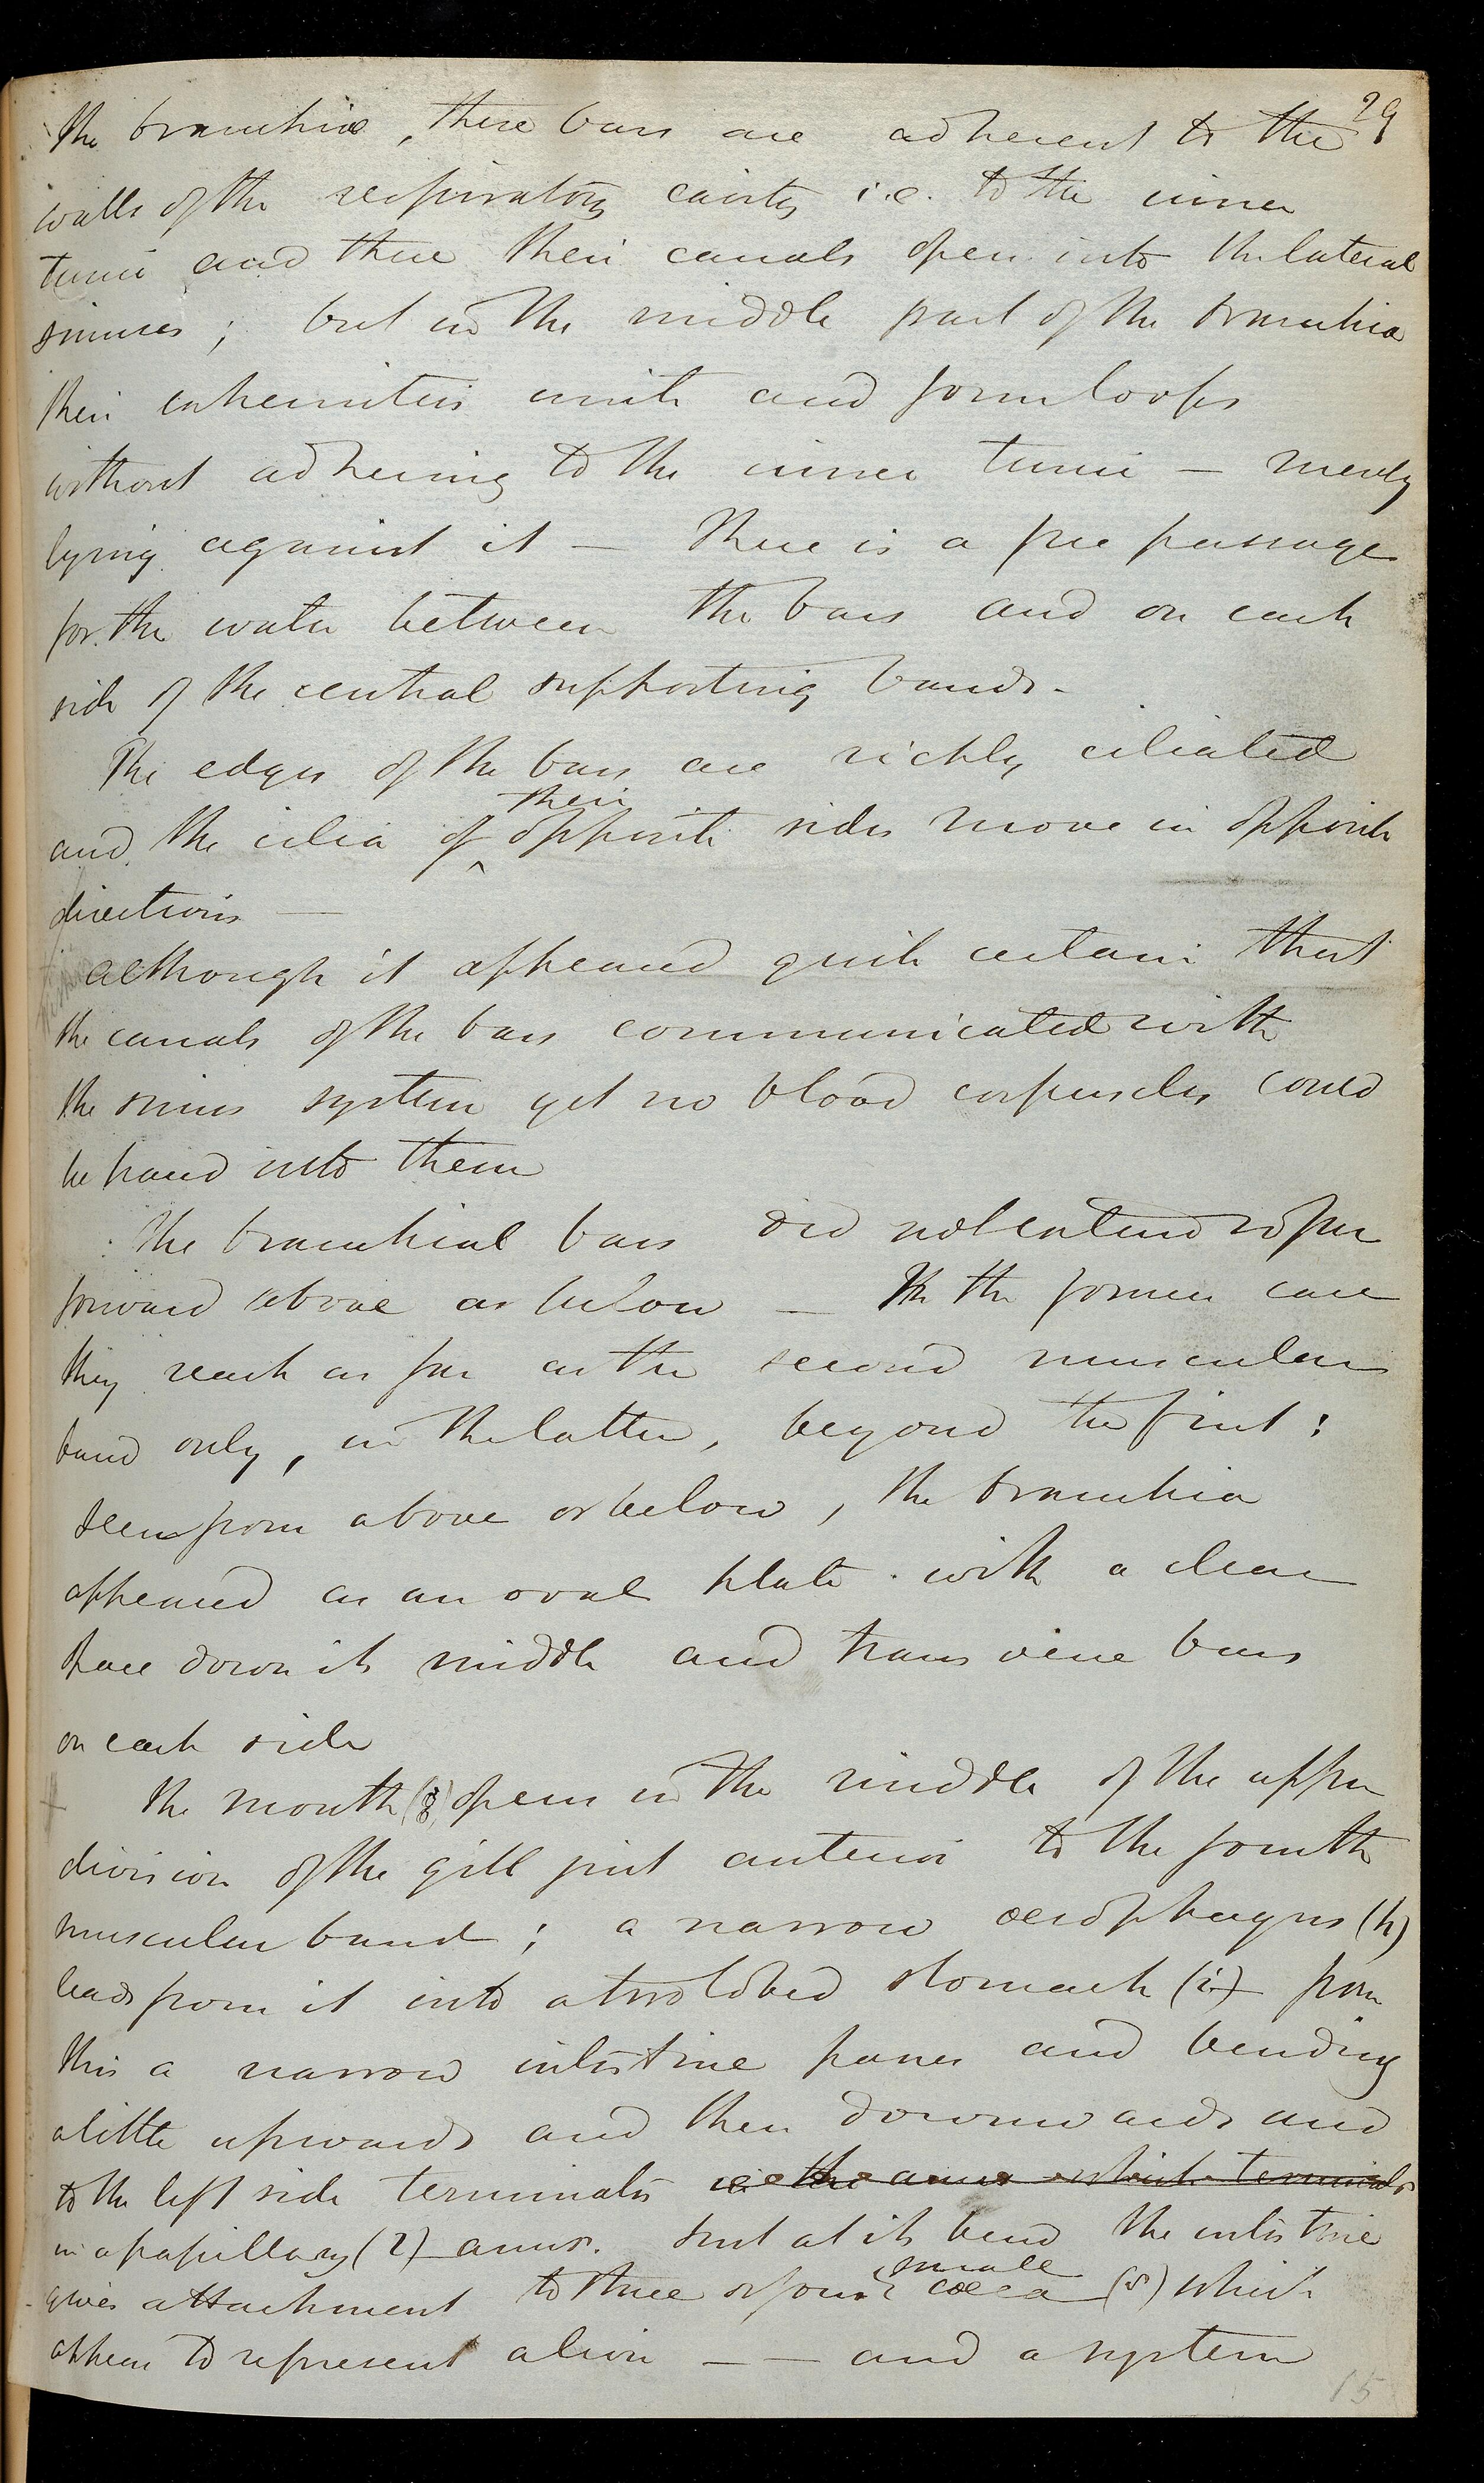 29
the branchiæ, these bars are adherent to the
walls of the respiratory cavity i.e. to the inner
tunic and there their canals open into the lateral
sinuses; but in the middle part of the branchia
their extremities unite and form loops
without adhering to the inner tunic — merely
lying against it — There is a free passage
for the water between the bars and on each
side of the central supporting bands.
The edges of the bars are richly ciliated
their
and the cilia of opposite sides move in opposite
directions —
although it appeared quite certain that
the canals of the bars communicated with
the sinus system yet no blood corpuscles could
be traced into them
The branchial bars did not extend so far
forward above as below — In the former case
they reach as far as the second muscular
band only, in the latter, beyond the first:
seen from above or below, the branchia
appeared as an oval plate with a clear
space down its middle and transverse bars
on each side
The mouth (g) opens in the middle of the upper
division of the gill just anterior to the fourth
muscular band; a narrow œsophagus (h)
leads from it into a two lobed stomach (i) from
this a narrow intestine passes and bending
a little upwards and then downwards and
to the left side terminates in the anus which terminates
in a papillary (l) anus. Just at its bend the intestine
small
gives attachment to three or four cœca (s) which
appear to represent a liver — — and a system
15